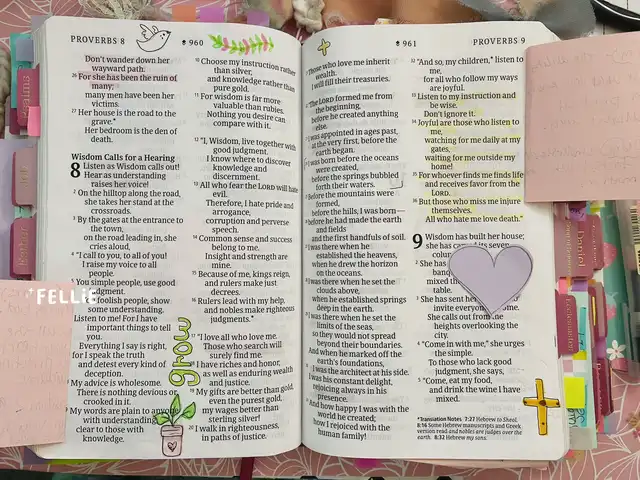 PROVERBS 8
960
Don't wander down her
wayward path.
26 For she has been the ruin of
many;
many men have been her
victims.
27 Her house is the road to the
grave.*
Her bedroom is the den of
death.
Wisdom Calls for a Hearing
8 Listen as Wisdom calls out!
Hear as understanding
raises her voice!
2 On the hilltop along the road,
she takes her stand at the
crossroads.
3 By the gates at the entrance to
the town,
on the road leading in, she
cries aloud,
4 "I call to you, to all of you!
I raise my voice to all
people.
5 You simple people, use good
judgment.
foolish people, show
some understanding.
Listen to me! For I have
important things to tell
you.
Everything I say is right,
for I speak the truth
and detest every kind of
deception.
My advice is wholesome.
There is nothing devious or
crooked in it.
My words are plain to anyone
with understanding,
clear to those with
knowledge.
10 Choose my instruction rather
than silver,
and knowledge rather than
pure gold.
11 For wisdom is far more
valuable than rubies.
Nothing you desire can
compare with it.
12 "I, Wisdom, live together with
good judgment.
I know where to discover
knowledge and
discernment.
13 All who fear the LORD will hate
evil.
Therefore, I hate pride and
arrogance,
corruption and perverse
speech.
14 Common sense and success
belong to me.
Insight and strength are
mine.
15 Because of me, kings reign,
and rulers make just
decrees.
16 Rulers lead with my help,
and nobles make righteous
judgments.*
17 "I love all who love me.
Those who search will
surely find me.
18 I have riches and honor,
as well as enduring wealth
and justice.
19 My gifts are better than gold,
even the purest gold,
my wages better than
sterling silver!
20 I walk in righteousness,
in paths of justice.
grow
FELLIE
961
PROVERBS 9
Those who love me inherit
wealth.
I will fill their treasuries.
"The LORD formed me from
the beginning,
before he created anything
else.
I was appointed in ages past,
at the very first, before the
earth began.
I was born before the oceans
were created,
before the springs bubbled
forth their waters.
Before the mountains were
formed,
before the hills, I was born—
before he had made the earth
and fields
and the first handfuls of soil.
I was there when he
established the heavens,
when he drew the horizon
on the oceans.
I was there when he set the
clouds above,
when he established springs
deep in the earth.
I was there when he set the
limits of the seas,
so they would not spread
beyond their boundaries.
And when he marked off the
earth's foundations,
I was the architect at his side.
I was his constant delight,
rejoicing always in his
presence.
And how happy I was with the
world he created;
how I rejoiced with the
human family!
32 "And so, my children,* listen to
me,
for all who follow my ways
are joyful.
33 Listen to my instruction and
be wise.
Don't ignore it.
34 Joyful are those who listen to
me,
watching for me daily at my
gates,
waiting for me outside my
home!
35 For whoever finds me finds life
and receives favor from the
LORD.
36 But those who miss me injure
themselves.
All who hate me love death."
9 Wisdom has built her house;
she has its seven
2 She has
mixed the
table.
3 She has sent her
invite everyone
She calls out from
heights overlooking the
city.
4 "Come in with me," she urges
the simple.
To those who lack good
judgment, she says,
5 "Come, eat my food,
and drink the wine I have
mixed.
*Translation Notes 7:27 Hebrew to Sheol.
8:16 Some Hebrew manuscripts and Greek
version read and nobles are judges over the
earth. 8:32 Hebrew my sons.
Daniel